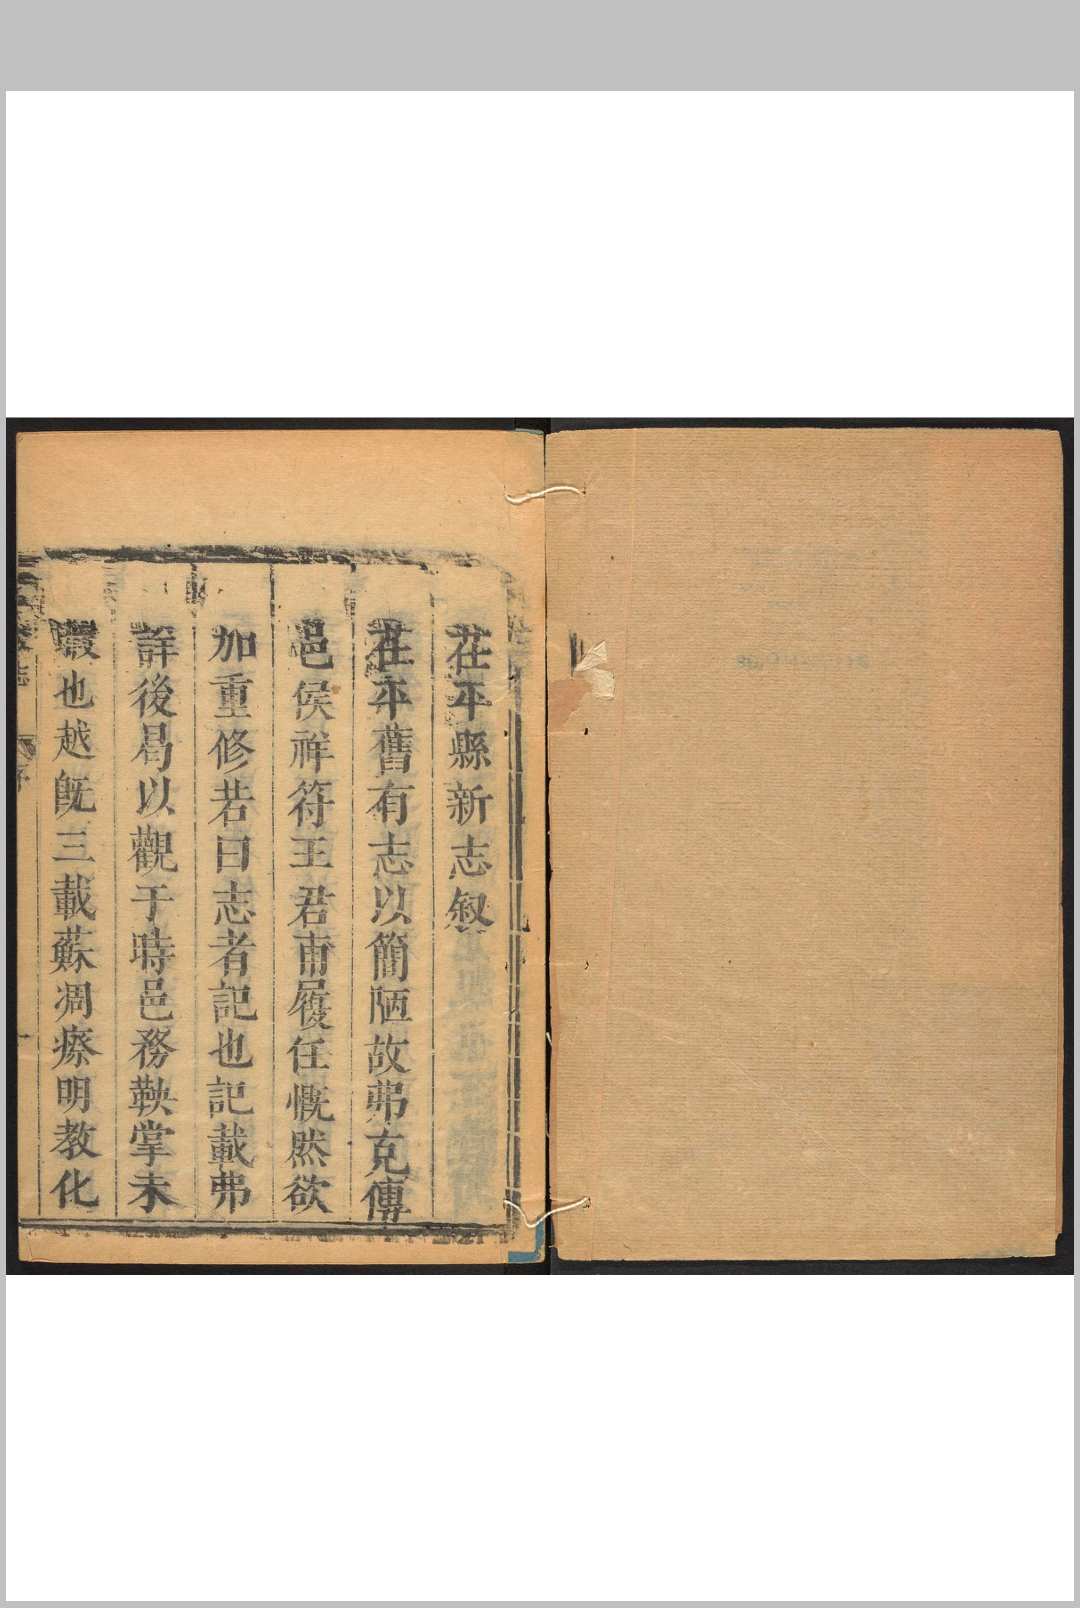 茌平縣新志敘
茌平舊有志以簡陋故弗克傳
邑侯祥符王君甫履任慨然欲
加重修若曰志者記也記載弗
詳後曷以觀于時邑務鞅掌未
也越旣三載蘇凋瘵明教化